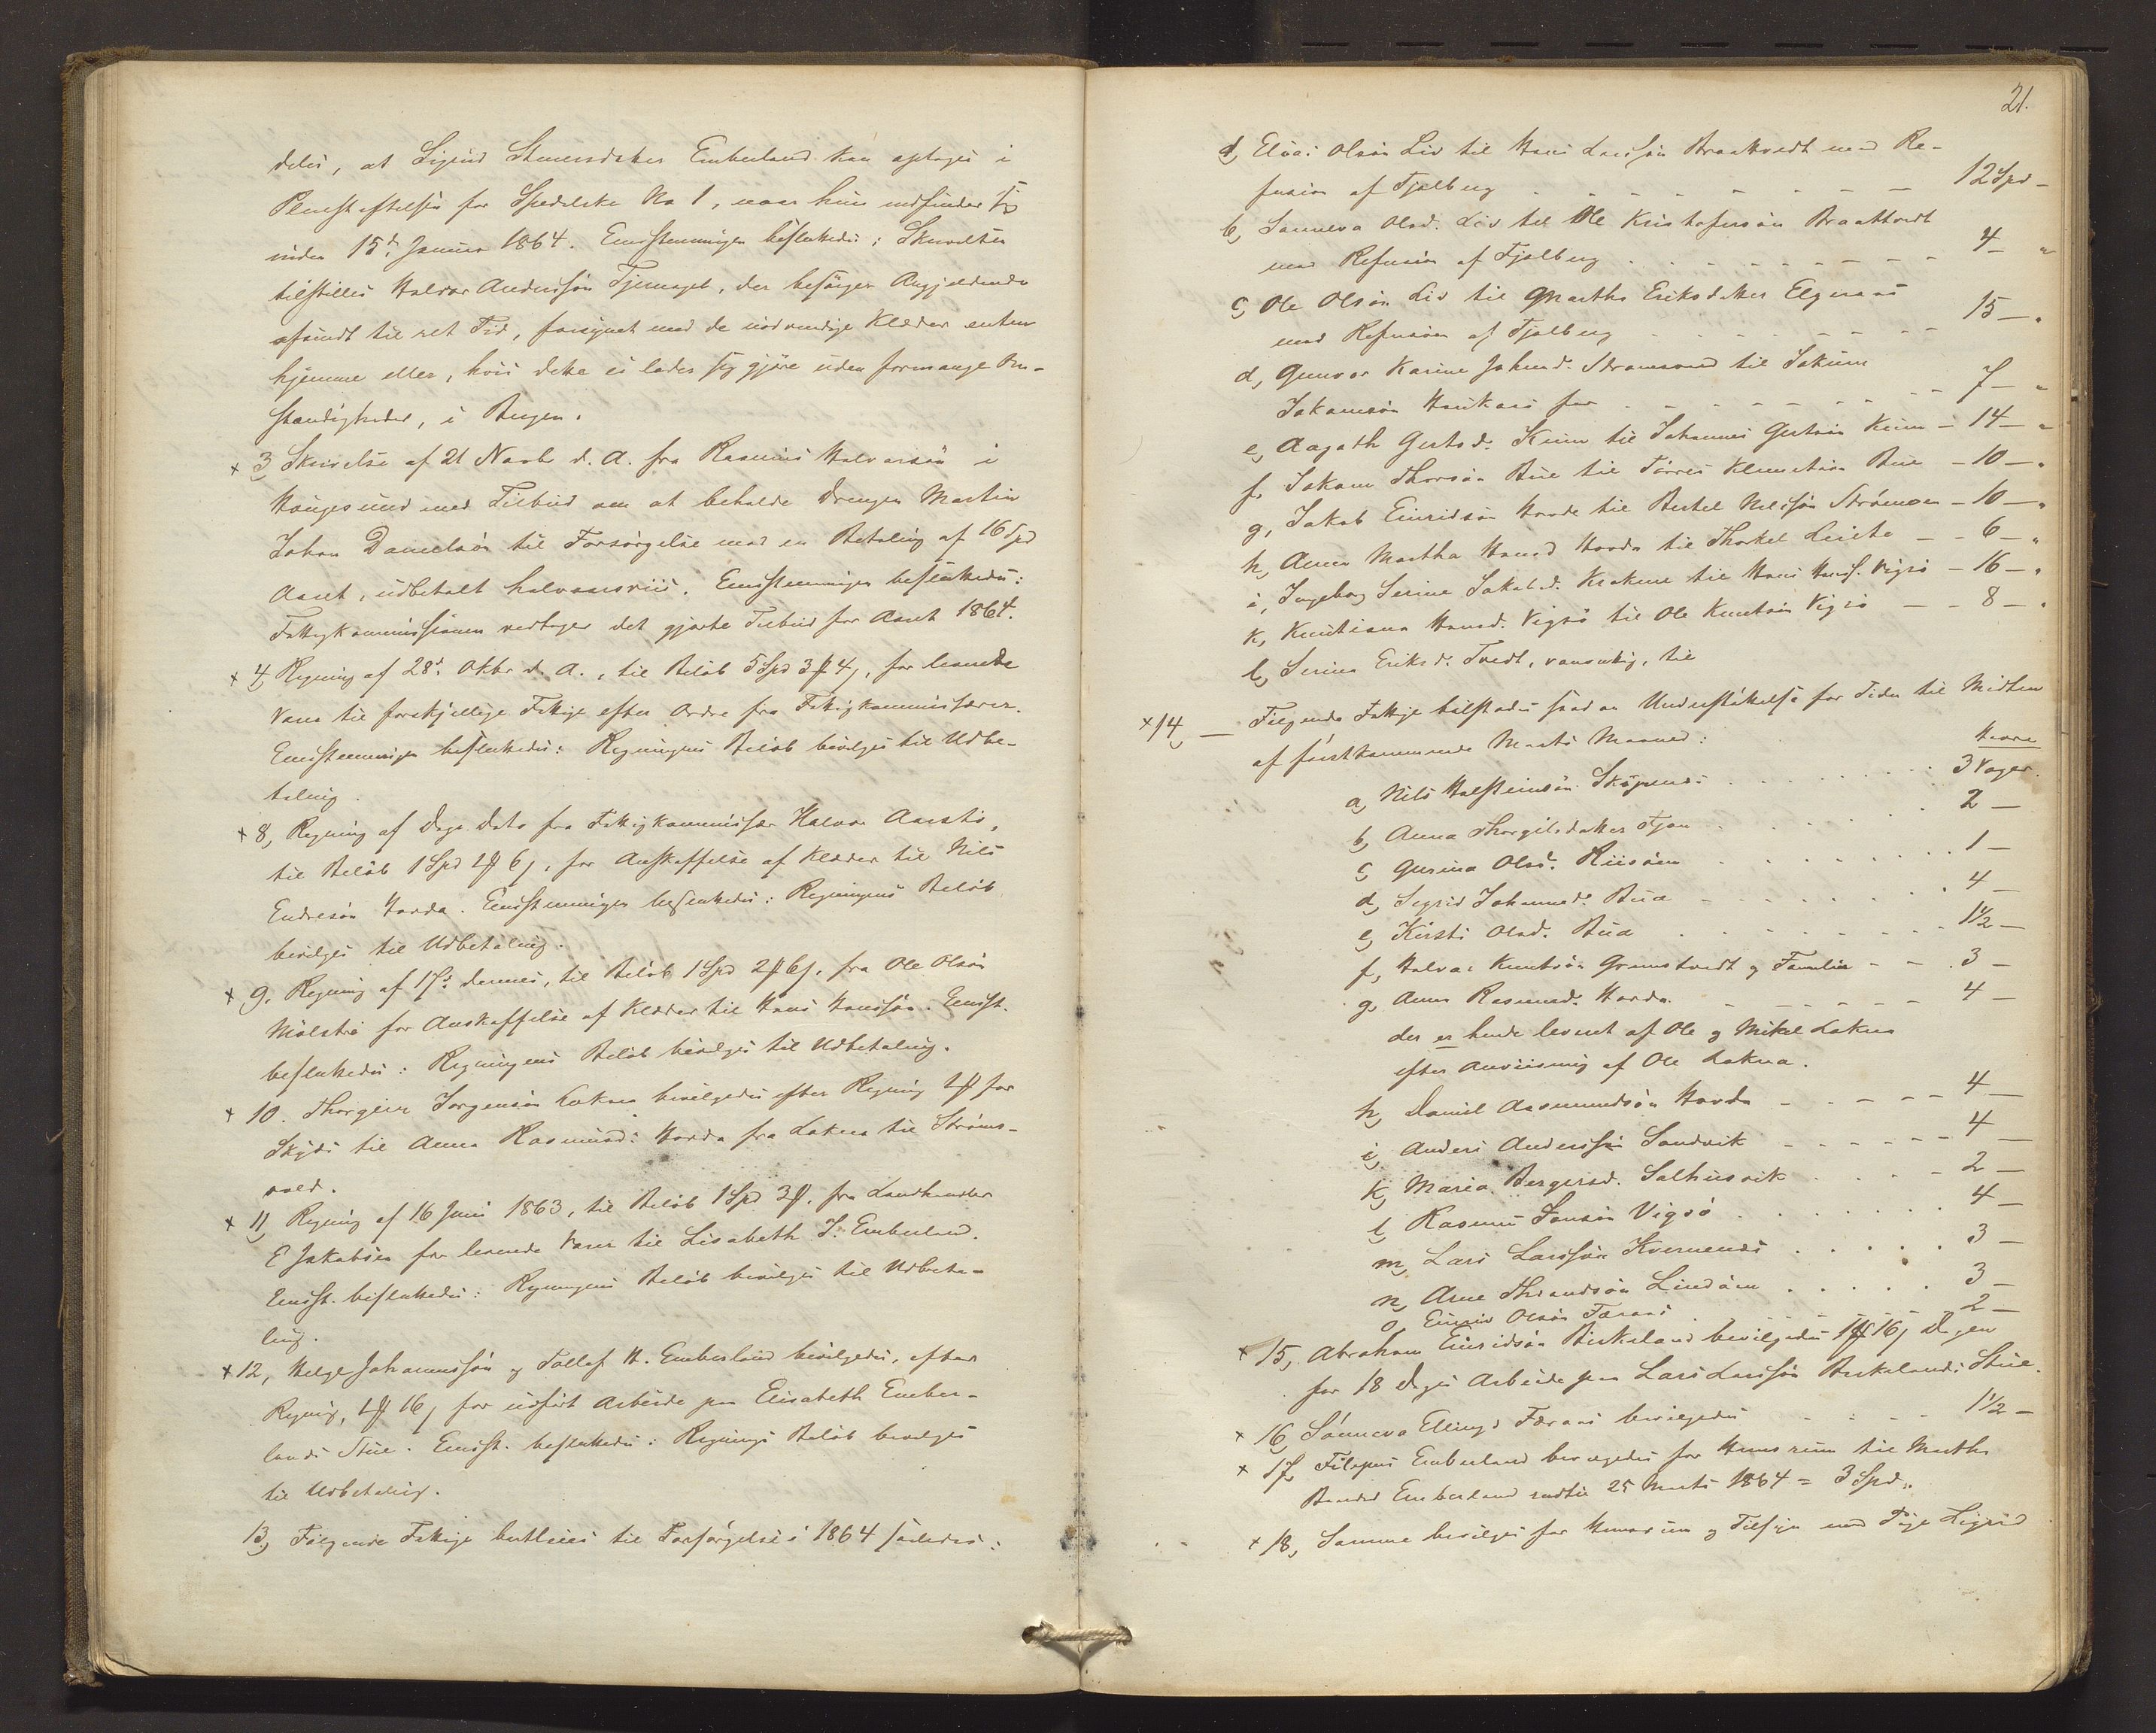 deles, at Sigrid Steensdatter Emberland kan optages i
Pleiestiftelsen for Spedalske No 1, naar hun indfinder sig
inden 15de Januar 1864. Eenstemmigen besluttedes: Skrivelsen
tilstilles Halvor Anderssøn Tjernagel, der besørger Angjeldende
afsendt til ret Tid, forsynet med de nødvendige Klæder enten
hjemme eller, hvis dette ei lader sig gjøre uden formange Om-
stændigheder, i Bergen.
x 3, Skrivelse af 21 Novbr d. A. fra Rasmus Halvorsøn i
Haugesund med Tilbud om at beholde Drengen Martin
Johan Danielsøn til Forsørgelse mod en Betaling af 16 Spd
Aaret, udbetalt halvaarsviis. Eenstemmigen besluttedes:
Fattigkommissionen vedtager det gjorte Tilbud for Aaret 1864.
x 4, Regning af 28d. Oktbr d. A., til Beløb 5 Spd 3 ₰ 4 ſ, for leverede
Varer til forskjellige Fattige efter Ordre fra Fattigkommissærer.
Eenstemmigen besluttedes: Regningens Beløb bevilges til Udbe-
taling.
x 8, Regning af Dags Dato fra Fattigkommissær Halvor Aarstø,
til Beløb 1 Spd 2 ₰ 6 ſ, for Anskaffelse af Klæder til Nils
Endresøn Hovda. Eenstemmigen besluttedes: Regningens Beløb
bevilges til Udbetaling.
x 9, Regning af 17d. dennes, til Beløb 1 Spd 2 ₰ 6 ſ, fra Ole Olsøn
Mølstre for Anskaffelse af Klæder til Hans Hanssøn. Eenst.
besluttedes: Regningens Beløb bevilges til Udbetaling.
x 10. Thorgeir Jørgensøn Løkna bevilgedes efter Regning 2 ₰ for
Skyds til Anna Rasmusd. Hovda fra Løkna til Strøms-
vold.
x 11, Regning af 16 Juni 1863, til Beløb 1 Spd 3 ₰. fra Landhandler
E Jakobsen for leverede Varer til Lisabeth J. Emberland.
Eenst. besluttedes: Regningens Beløb bevilges til Udbeta-
ling.
x 12, Helge Johannessøn og Tollef H. Emberland bevilgedes, efter
Regning, 4 ₰ 16 ſ for udført Arbeide paa Elisabeth Ember-
lands Stue. Eenst. besluttedes: Regnings Beløb bevilges
til Udbetaling.
13, Følgende Fattige bortleies til Forsørgelse i 1864 saaledes:
21.
a, Elias Olsøn Liv til Hans Larssøn Braattvedt med Re-
fusion af Fjelberg 12 Spd -
b, Sønneva Olsd. Liv til Ole Kristofersøn Braattvedt
med Refusion af Fjelberg 4 - "
c, Ole Olsøn Liv til Martha Eriksdatter Elgenæs
med Refusion af Fjelberg 15 - "
d, Gunvor Karine Johnsd. Strømsvold til Jakum
Jakomsøn Haukaas for 7 - "
e, Aagath Gertsd. Keim til Johannes Gertsøn Keim - 14 - "
f, Jakom Thorsøn Bue til Tørres Klementsøn Bue - 10 - "
g, Jakob Einridsøn Hovde til Bertel Nilssøn Strømøen - 10 - "
h, Anna Martha Hansd Hovda til Thorkel Leiite - - 6 - "
i, Ingeborg Serine Jakobsd. Krokene til Hans Hanss. Vigsø - 16 - "
k, Knutiana Hansd. Vigsø til Ole Knutsøn Vigsø - - 8 - "
l, Serina Eriksd. Tvedt, vanvittig, til
x 14, - Følgende Fattige tilstaaes saadan Understøttelse for Tiden til Midten
af førstkommende Marts Maaned: Havre
a, Nils Halsteinsøn Skøpenes 3 Voger.
b, Anna Thorgilsdatter Tjøn 2 -
c, Gurina Olsd. Kiisøen 1 -
d, Sigrid Johannesd. Bua 4 -
e, Kirsti Olsd. Bua 1½ -
f, Halvor Knutsøn Grønstvedt og Familie - - 3 -
g, Anna Rasmusd. Hovda. 4 -
der er hende leveret af Ole og Mikel Løkna
efter Anviisning af Ole Løkna.
h, Daniel Aasmundsøn Hovda 4 -
i, Anders Anderssøn Sandvik 4 -
k, Maria Bergersd. Salhusvik 2 -
l, Rasmus Jansøn Vigsø 4 -
m, Lars Larssøn Kvernenæs 3 -
n, Arne Thrandsøn Lindøen 3 -
o, Einriv Olsøn Færaas 2 -
x 15, Abraham Einridsøn Birkeland bevilgedes 1 ₰ 16 ſ Dagen
for 18 Dages Arbeide paa Lars Larssøn Birkelands Stue.
x 16, Sønneva Ellingsd Færaas bevilgedes 1½ -
x 17, Filippus Emberland bevilgedes for Huusrum til Martha
Baardsd Emberland indtil 25 Marts 1864 = 3 Spd.
x 18, Samme bevilges for Huusrum og Tilsyn med Pige Sigrid